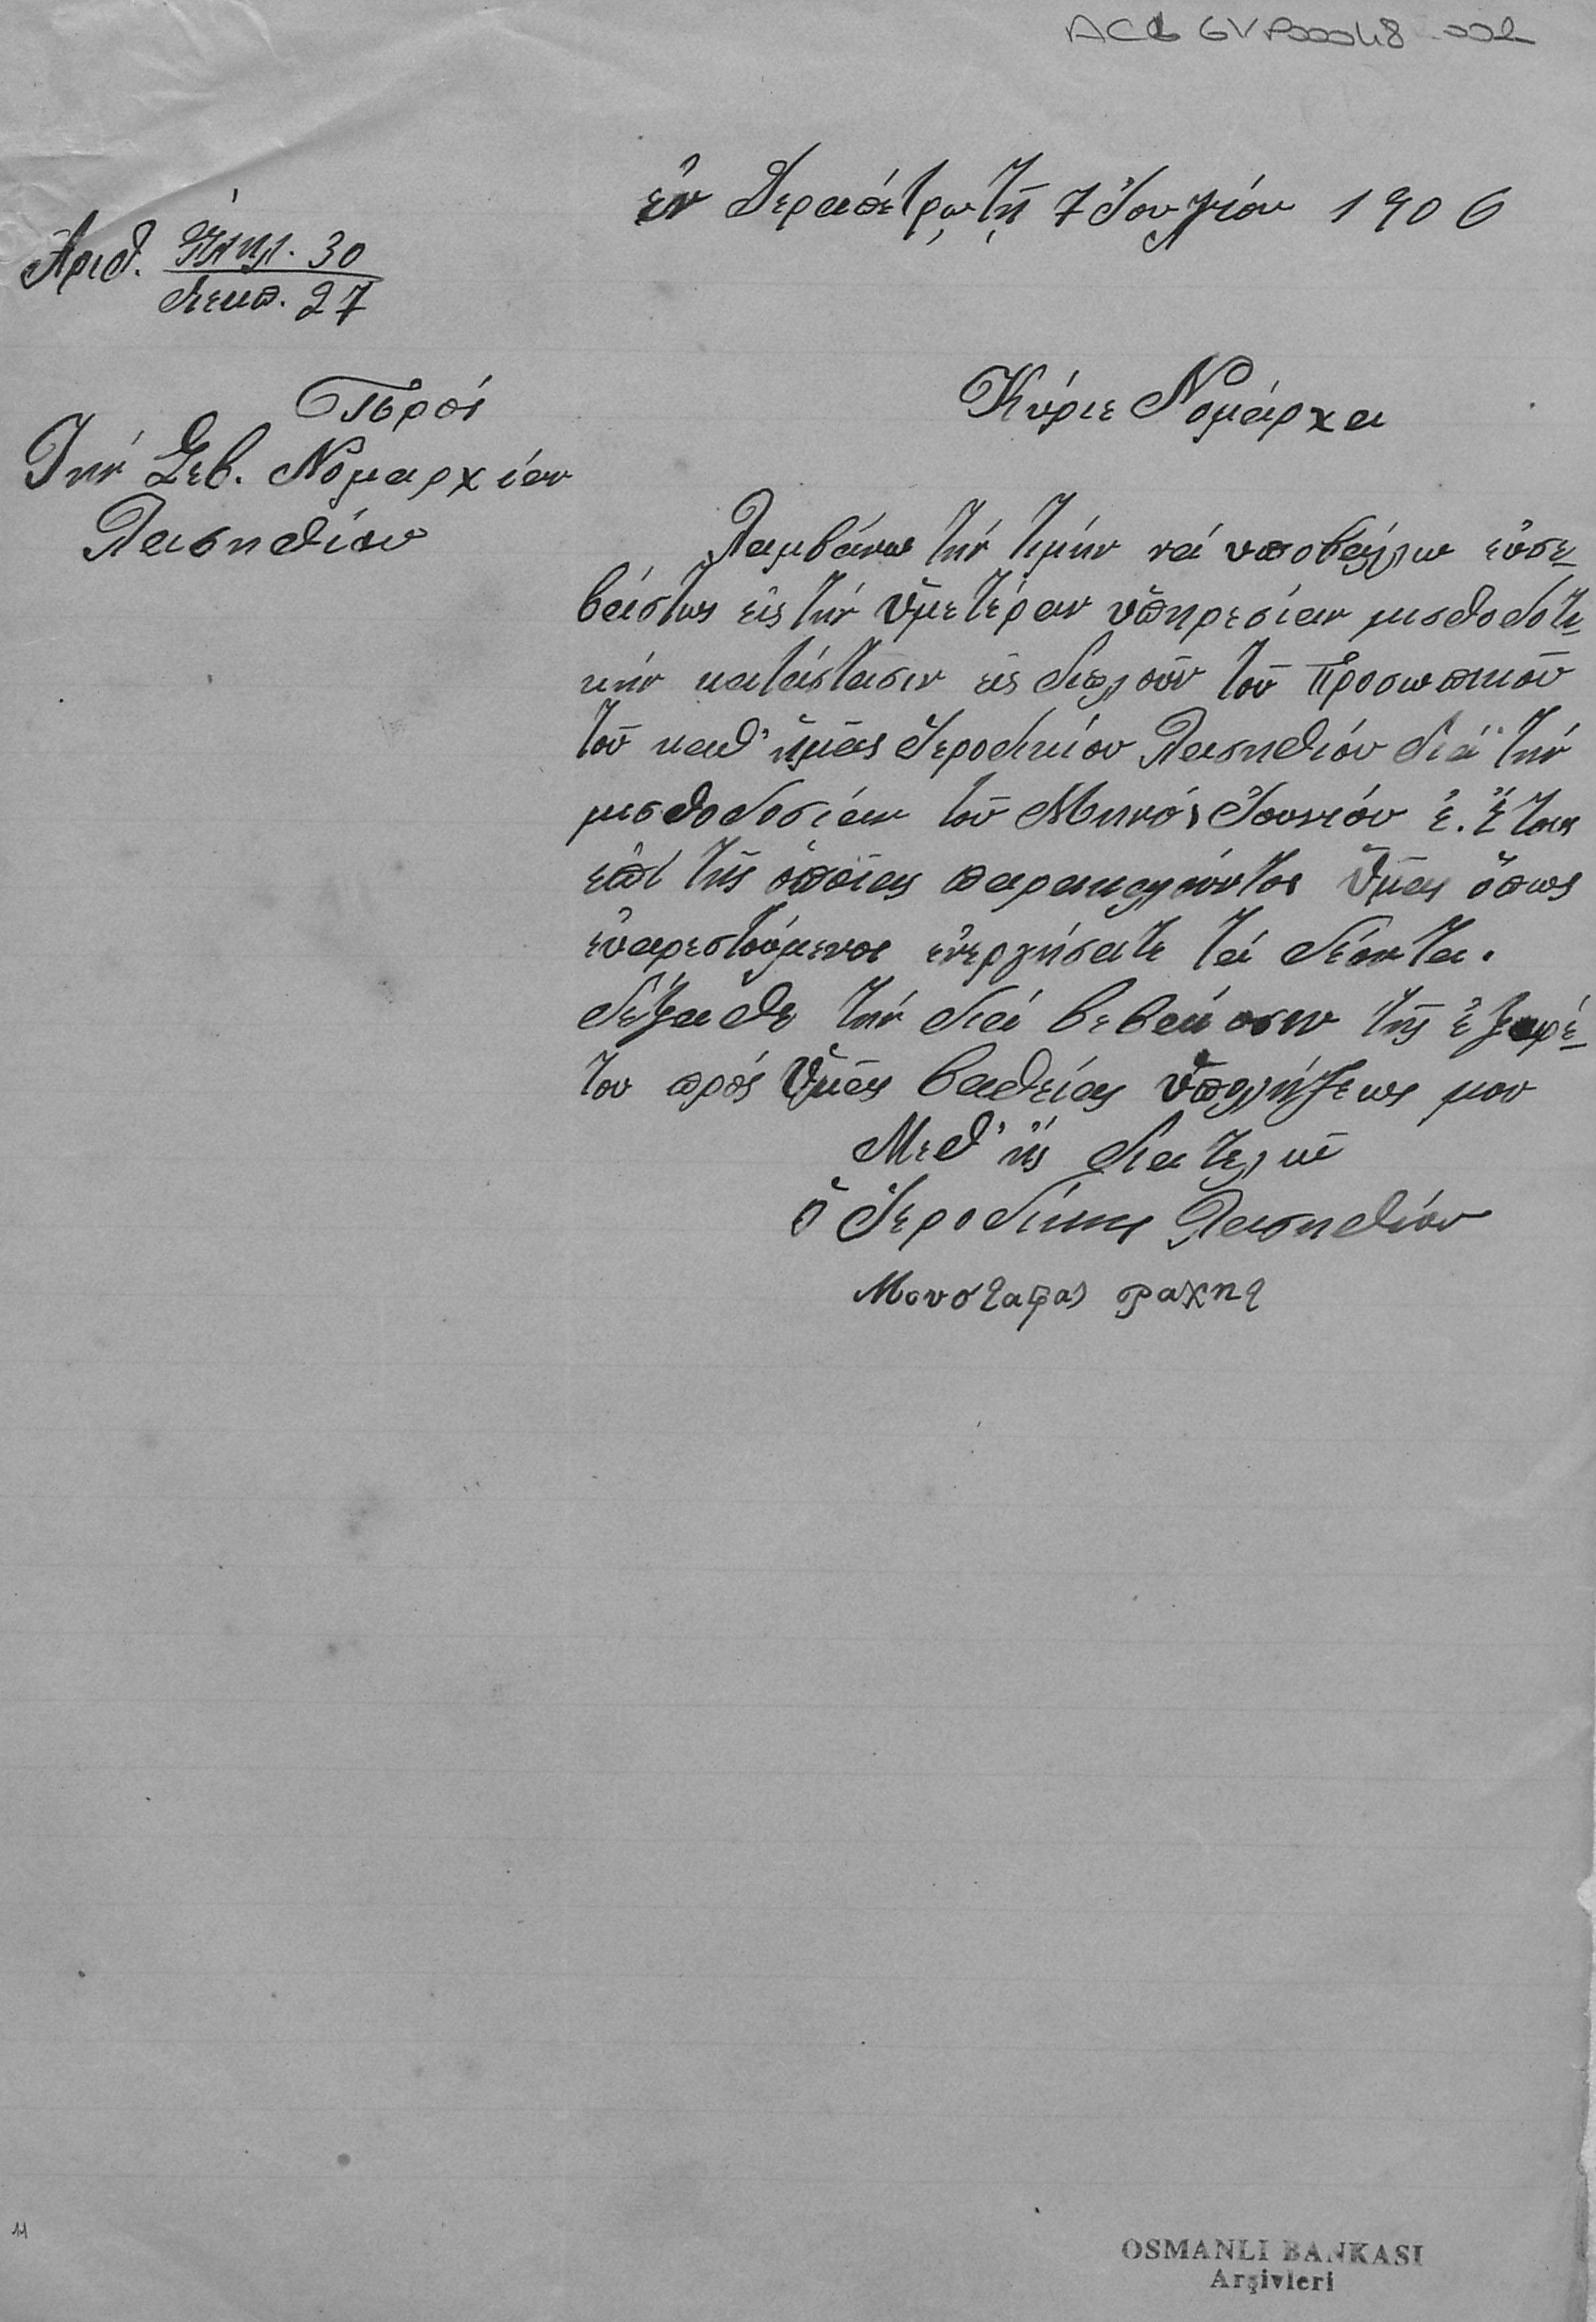 ἐν Ἱεραπέτρᾳ τῇ 7 Ἰουλίου 1906
Ἀριθ. Πρωτ. 30
Διεκπ. 27
Πρός
Τήν Σεβ. Νομαρχίαν
Λασηθίου
Κύριε Νομάρχα
Λαμβάνω τήν τιμήν νά υποβάλλω εὐσε-
βάστως εἰς τήν ὑμετέραν ὑπηρεσίαν μισθοδοτι-
κήν κατάστασιν εἰς διπλοῦν τοῦ Προσωπικοῦ
τοῦ καθ' ἡμᾶς Ἱεροδικίου Λασηθίου διά τήν
μισθοδοσίαν τοῦ Μηνός Ἰουνίου ἐ. ἔτους
ἐπί τῆς ὁποίας παρακαλοῦντος Ὑμᾶς ὅπως
εὐαρεστούμενος ἐνεργήσατε τά δέοντα.
Δέξασθε τήν διά βεβαίωσιν τῆς ἐξαιρέ-
του πρός Ὑμᾶς βαθείας ὑπολήψεως μου
Μεθ' ἧς διατελῶ
ὁ Ἱεροδίκης Λασηθίου
Μουσταφας ραχης
OSMANLI BANKASI
Arşivleri